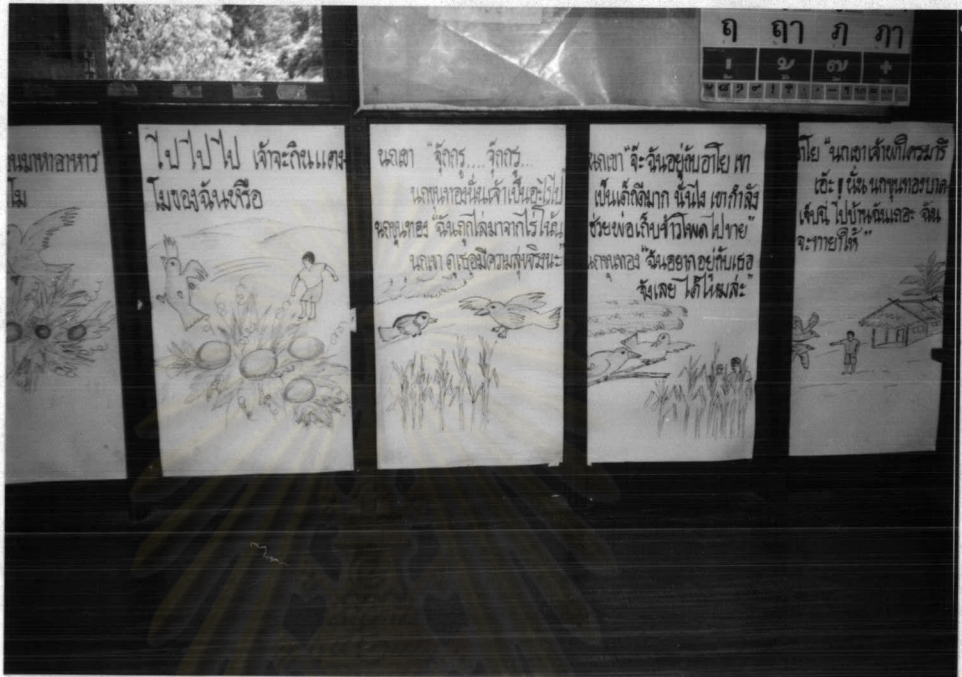 ฤ ฤๅ ภ ภา
มาหาอาหาร
โม
ไป ไป ไป เจ้าจะกินแตง
โมของฉันหรือ
นกเขา "จุ๊กกรู....จุ๊กกรู...
นกขุนทองนั่นเจ้าเป็นอะไรไป
นกขุนทอง "ฉันถูกไล่มาจากไร่โน้น"
นกเขา ดูเธอมีความสุขจริงนะ"
นกเขา "จ๊ะ ฉันอยู่กับอาโย เขา
เป็นเด็กดีมาก นั่นไง เขากำลัง
ช่วยพ่อเก็บข้าวโพดไปขาย"
นกขุนทอง "ฉันอยากอยู่กับเธอ
จังเลย ได้ไหมล่ะ"
อาโย "นกเขาเจ้าพาใครมารึ
เอ๊ะ !! นั่น นกขุนทองบาด
เจ็บนี่ ไปบ้านฉันเถอะ ฉัน
จะทายาให้"